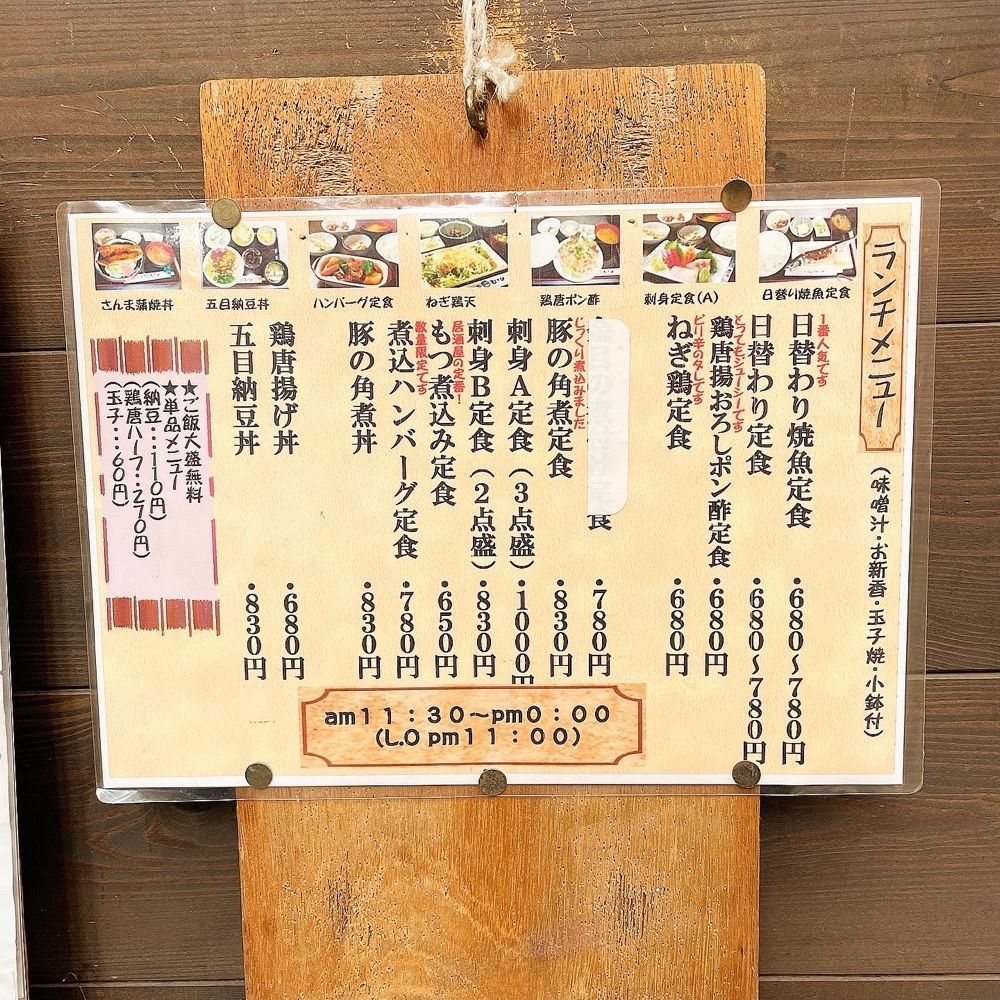 ランチメニュー
(味噌汁・お新香・玉子焼・小鉢付)
日替り焼魚定食
刺身定食(A)
鶏唐ポン酢
ねぎ鶏天
ハンバーグ定食
五目納豆丼
さんま蒲焼丼
1番人気です
日替わり焼魚定食・680〜780円
日替わり定食・680〜780円
とってもジューシーです
鶏唐揚おろしポン酢定食・680円
ピリ辛のタレです
ねぎ鶏定食・680円
食・780円
じっくり煮込みました
豚の角煮定食・830円
刺身A定食(3点盛)・1000円
刺身B定食(2点盛)・830円
居酒屋の定番!
もつ煮込み定食・650円
数量限定です
煮込ハンバーグ定食・780円
豚の角煮丼・830円
鶏唐揚げ丼・680円
五目納豆丼・830円
★ご飯大盛無料
★単品メニュー
(納豆・・・110円)
(鶏唐ハーフ・・270円)
(玉子・・・60円)
am11:30〜pm0:00
(L.O pm11:00)